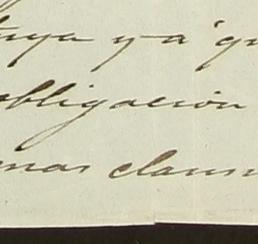 tuya y a qu
obligacion
mas claus